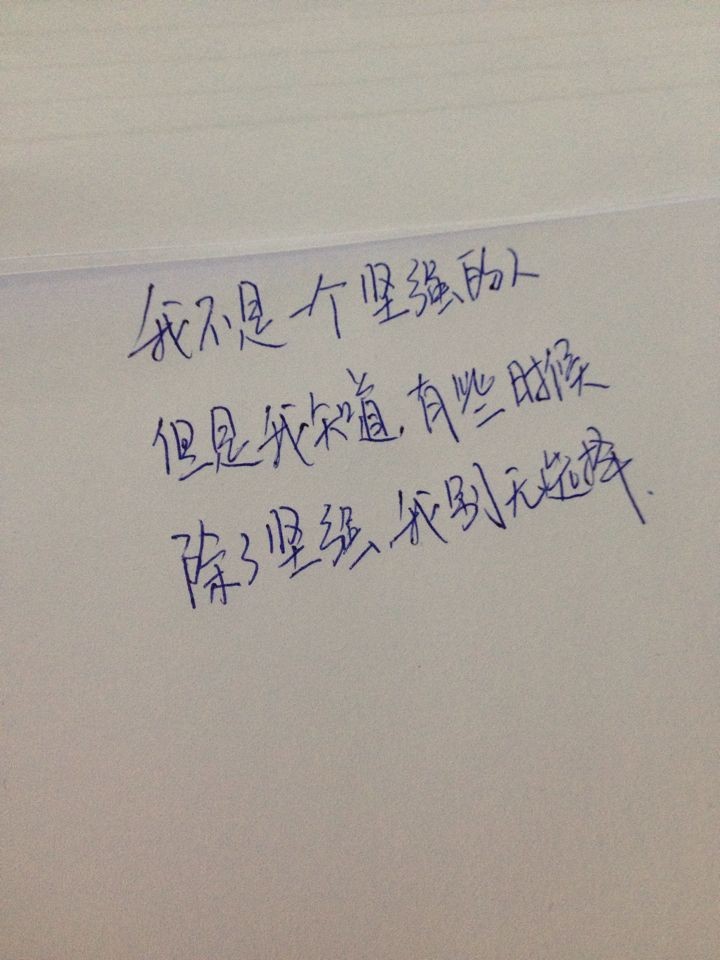 我不是一个坚强的人
但是我知道,有些时候
除了坚强,我别无选择.